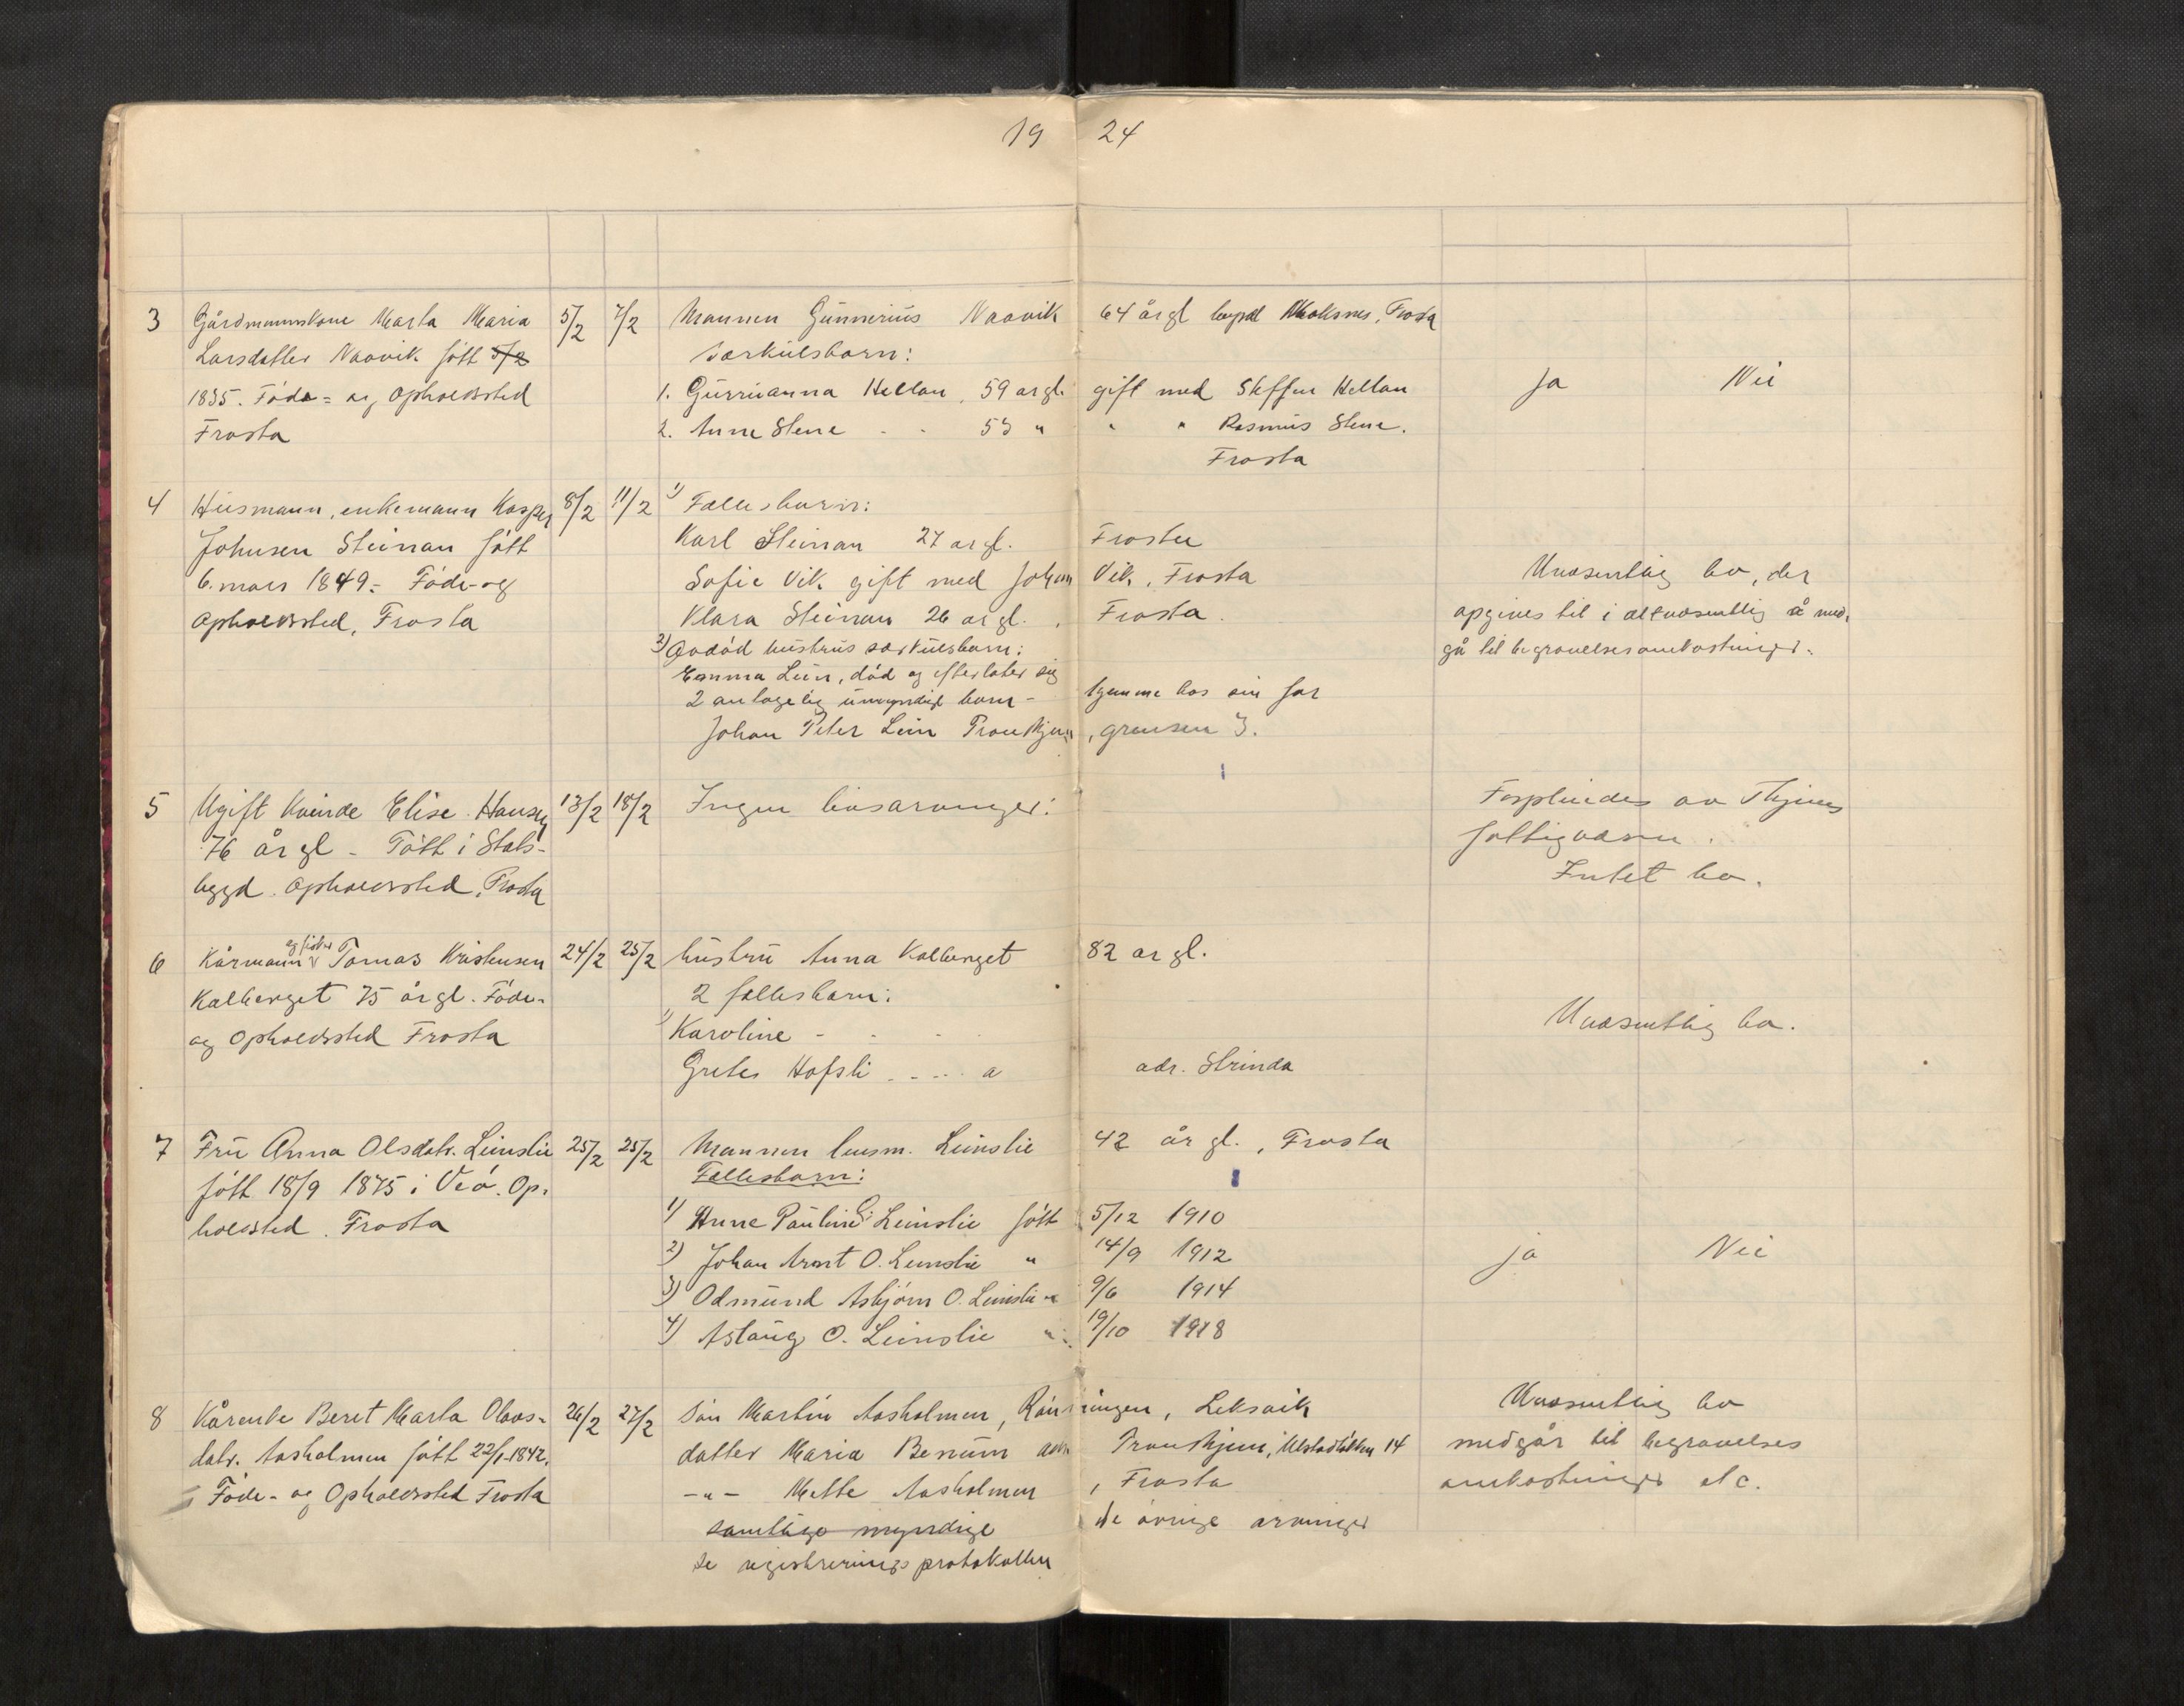 19 24
3 Gårdmannskone Marta Maria 5/2 7/2 Mannen Gunnerius Naavik 64 år gl Frosta
Larsdatter Naavik født 5/2 Særkulsbarn:
1835. Føde= og Opholdssted 1. Gurrianna Hellan, 59 år gl. gift med Steffen Hellan Ja Nei
Frosta 2. Anne Stene - - 53 " " " Rasmus Stene.
Frosta
4 Husmann, enkemann Kasper 8/2 11/2 1) Fællesbarn:
Johnsen Steinan født Karl Steinan 27 år gl. Frosta
6. mars 1849. Føde- og Sofie Vik gift med Johan Vik, Frosta Uvæsentlig bo, der
Opholdssted, Frosta Klara Steinan 26 år gl. Frosta. opgives til i altvæsentlig å med-
2) Avdød hustrus særkulsbarn: gå til begravelsesomkostninger.
Emma Lein, død og efterlater sig
2 antagelig umyndige barn - hjemme hos sin far
Johan Peter Lein Trondhjem, grensen 3.
5 Ugift kvinde Elise Hansen 13/2 18/2 Ingen livsarvinger: Forpleiedes av Thjems
76 år gl - Født i Stads- fattigvæsen.
bygd. Opholdssted, Frosta Intet bo.
6 Kårmann og fisker Tomas Kristensen 24/2 25/2 hustru Anna Kalberget 82 år gl.
Kalberget 75 år gl. Føde- 2 fællesbarn:
og Opholdssted Frosta 1) Karoline - - - Uvæsentlig bo.
Grete Hofsli - - - - a adr. Strinda
7 Fru Anna Olsdatr. Leinslie 25/2 25/2 Mannen husm. Leinslie 42 år gl., Frosta
født 18/9 1875 i Veø. Op- Fællesbarn:
holdssted. Frosta 1) Anne Pauline O. Leinslie født 5/12 1910
2) Johan Arnt O. Leinslie " 14/9 1912 ja Nei
3) Odmund Asbjørn O. Leinslie " 9/6 1914
4) Aslaug O. Leinslie " 19/10 1918
8 Kårenke Beret Marta Olaus- 26/2 27/2 Søn Martin Aasholmen, Rønningen, Leksvik Uvæsentlig bo
datr. Aasholmen født 22/1-1842. datter Maria Benum adr. Trondhjem, 14 medgår til begravelses
Føde- og Opholdssted Frosta -"- Mette Aasholmen, Frosta omkostninger etc.
samtlige myndige de øvrige arvinger
se registreringsprotokollen